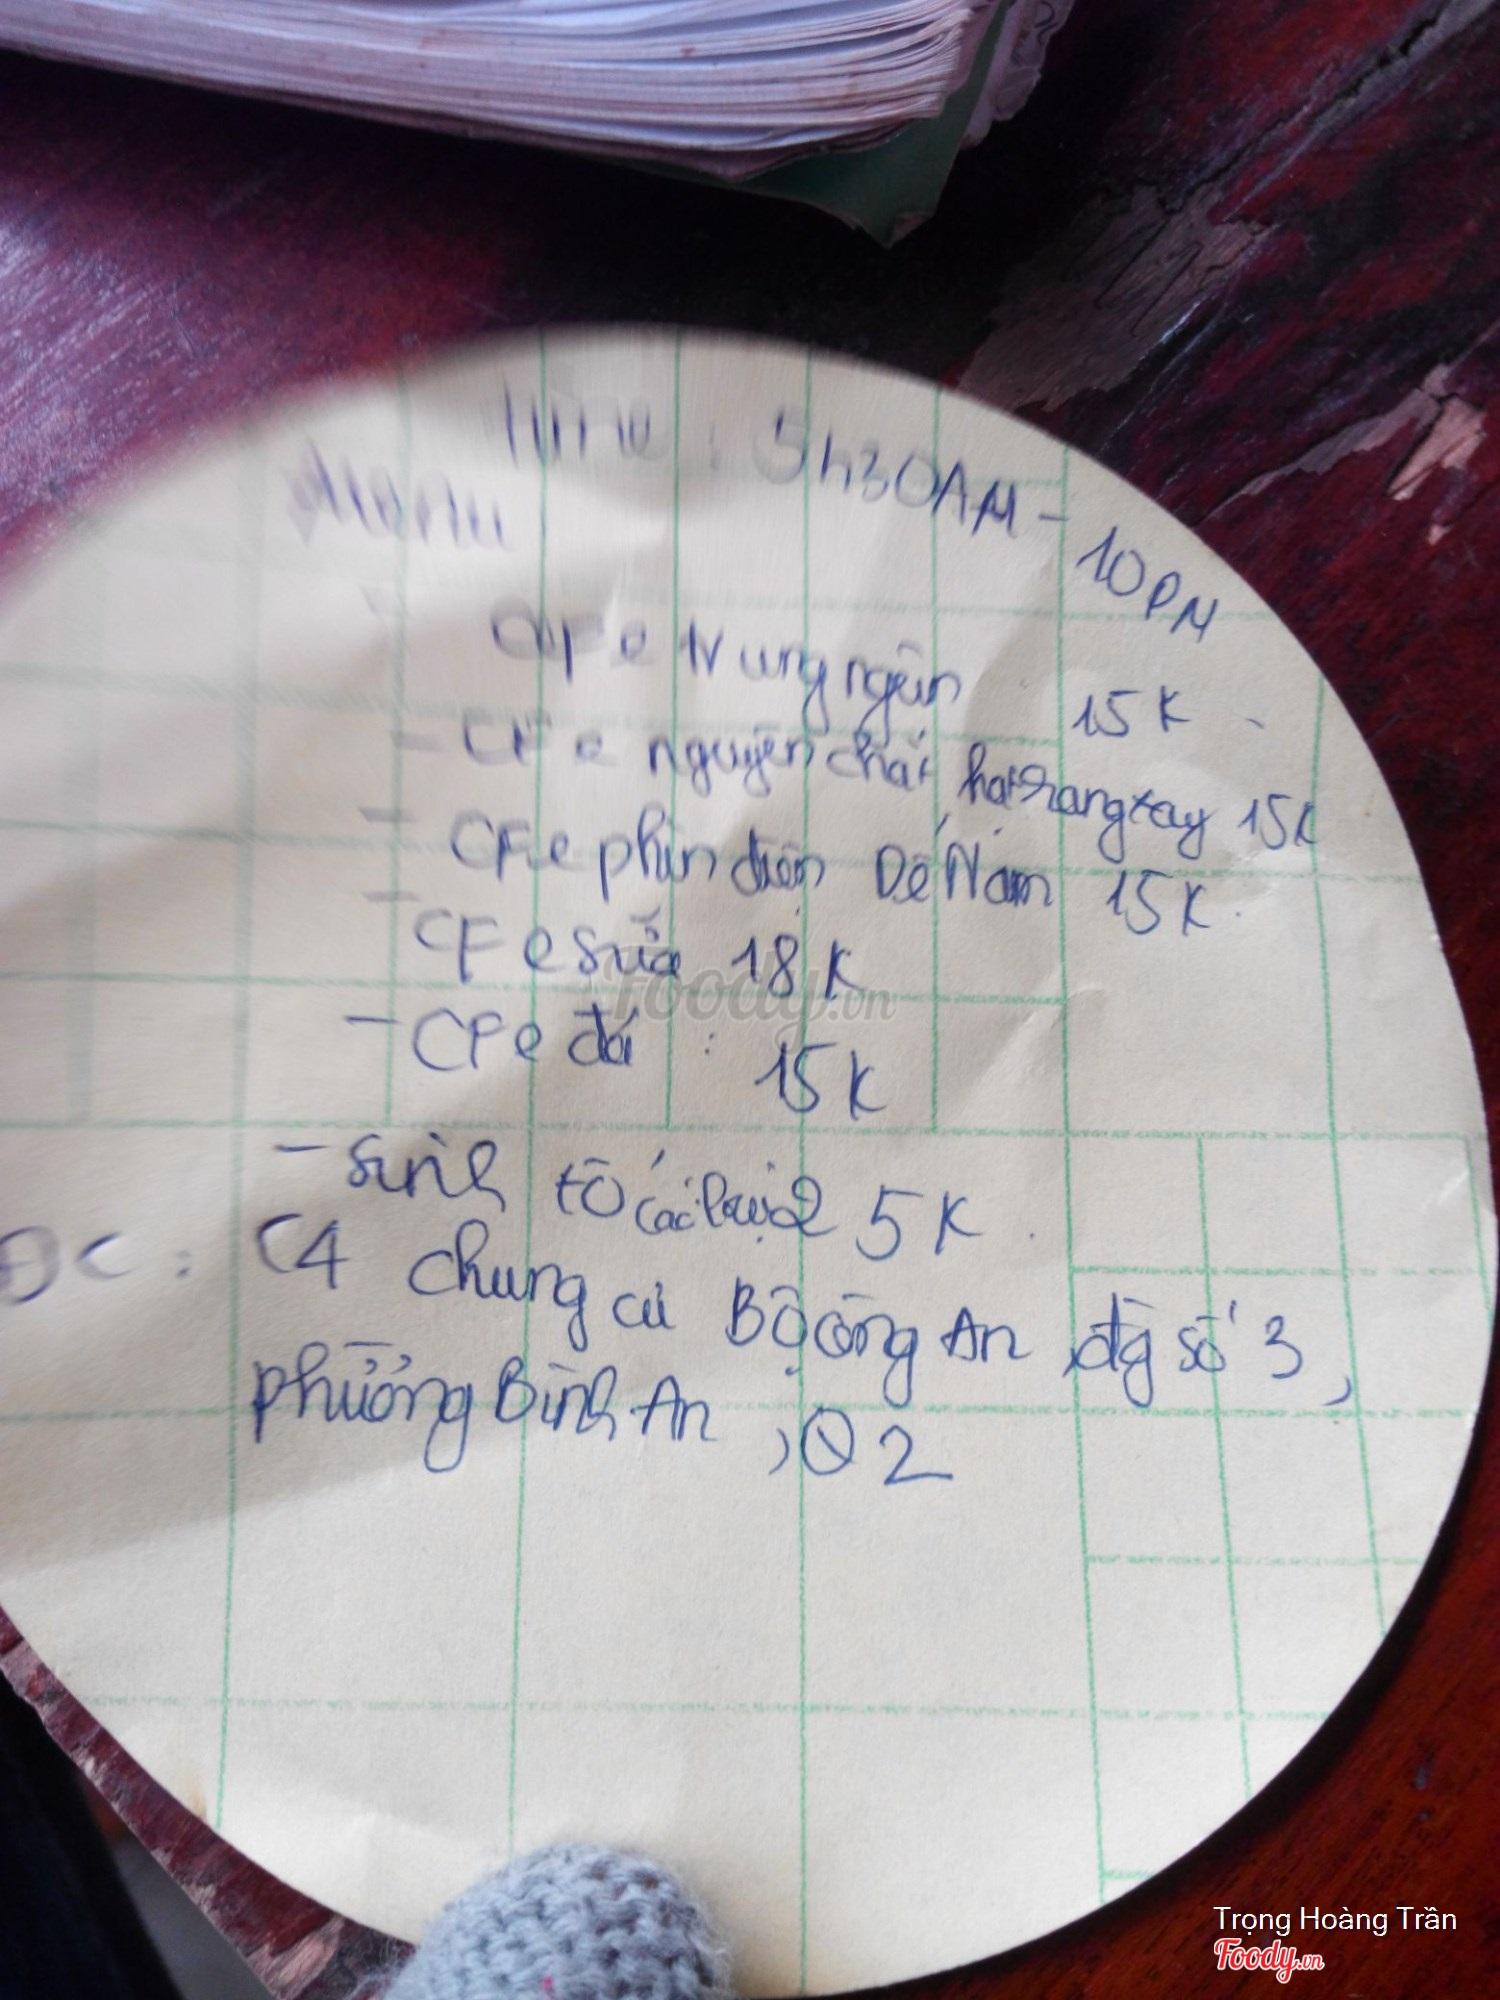 Time : 5h30AM - 10PM
Menu
CFe trung nguyên 15K
- CFe nguyên chất hạt rang xay 15K
- CFe phin điện Dế Nam 15K.
- CFe sữa 18K
- CFe đá : 15K
- Sinh tố các loại 25K.
ĐC : C4 chung cư Bộ công An, đg số 3,
phường Bình An, Q2
Foody.vn
Trọng Hoàng Trần
Foody.vn